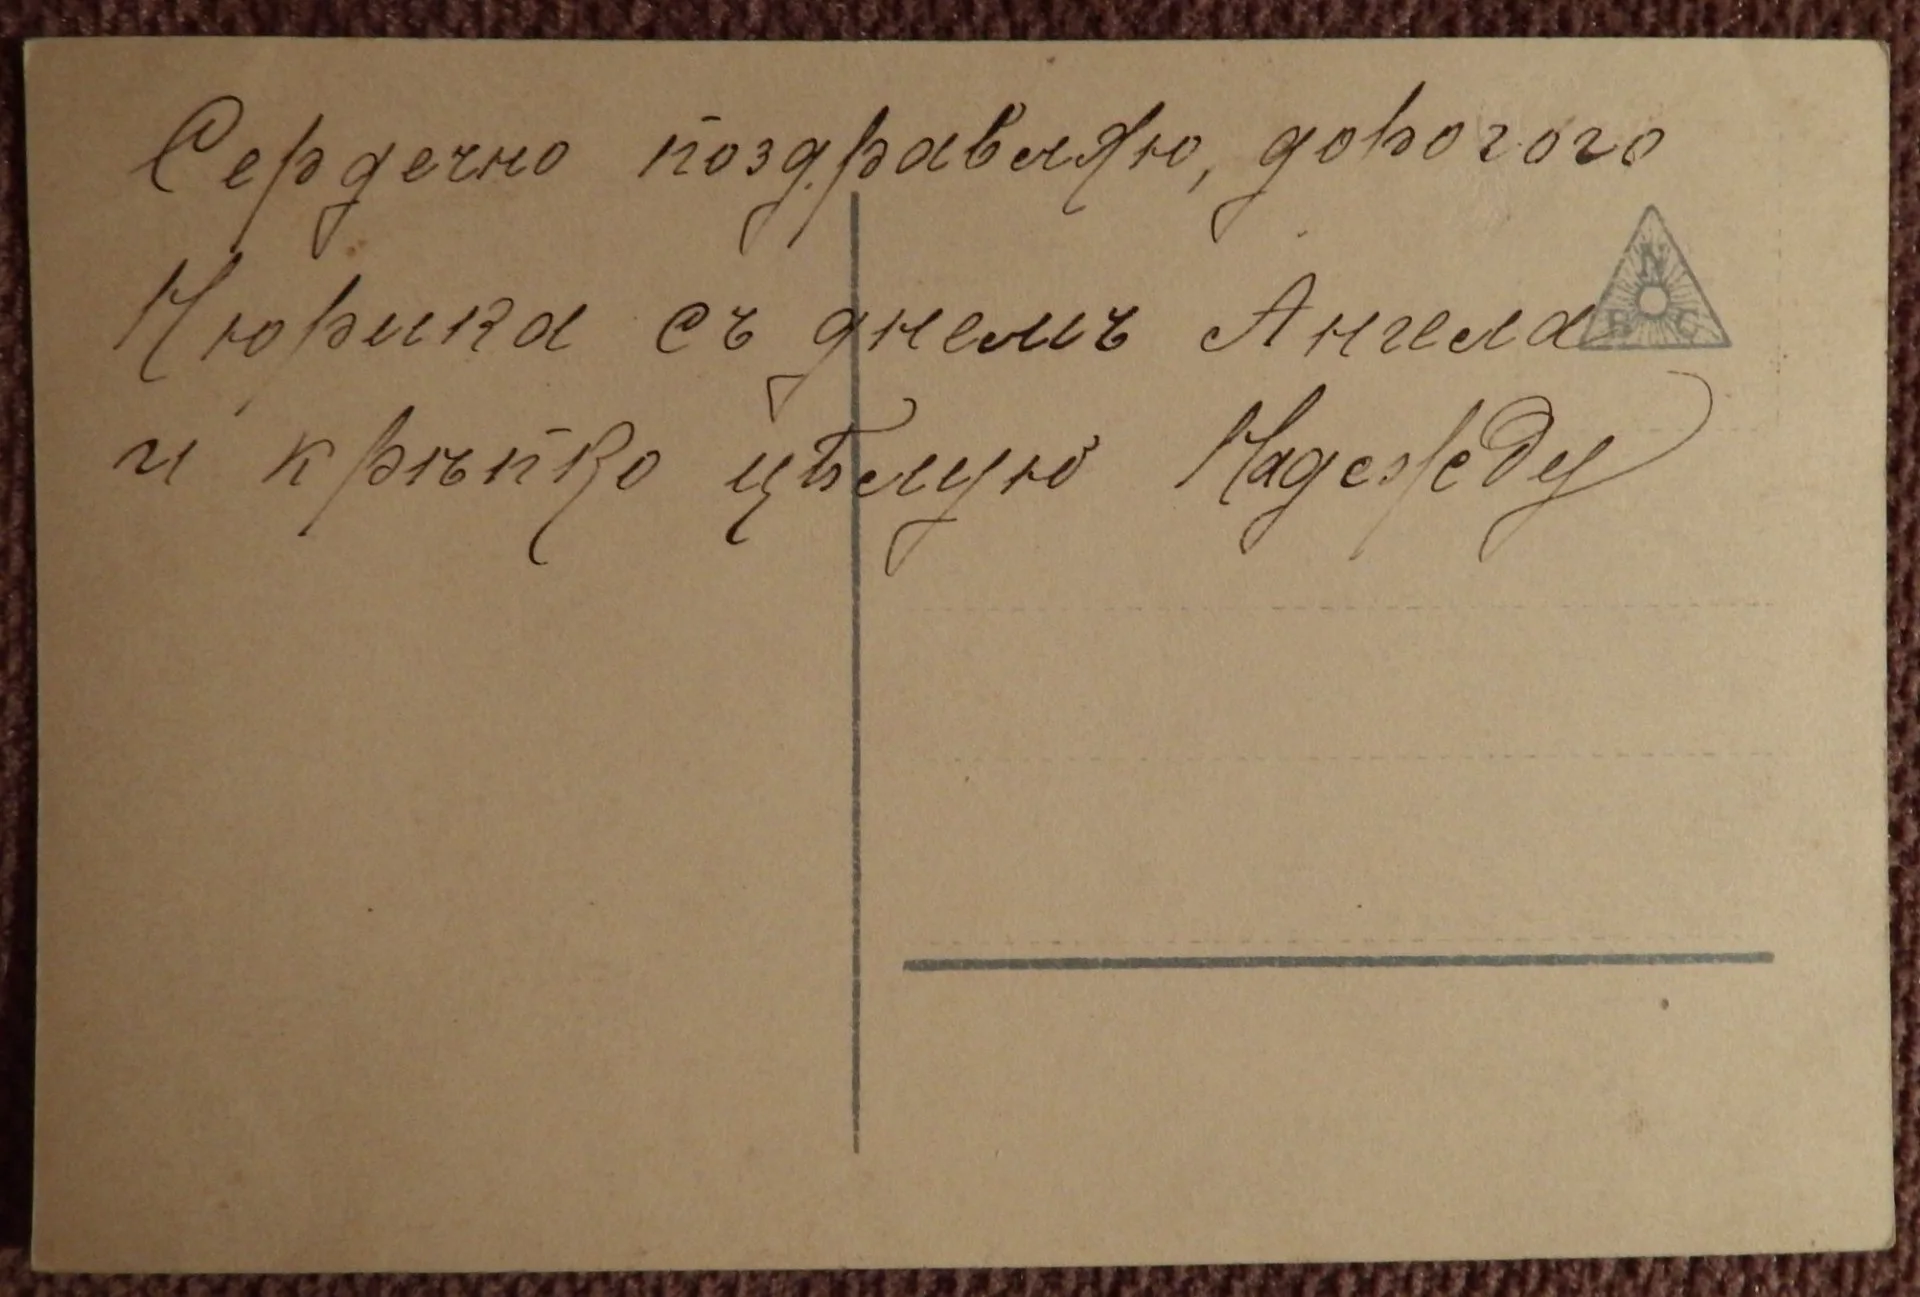 Сердечно поздравляю, дорогого
Нюрика съ днемъ Ангела
N
B C
и крѣпко цѣлую Надежду